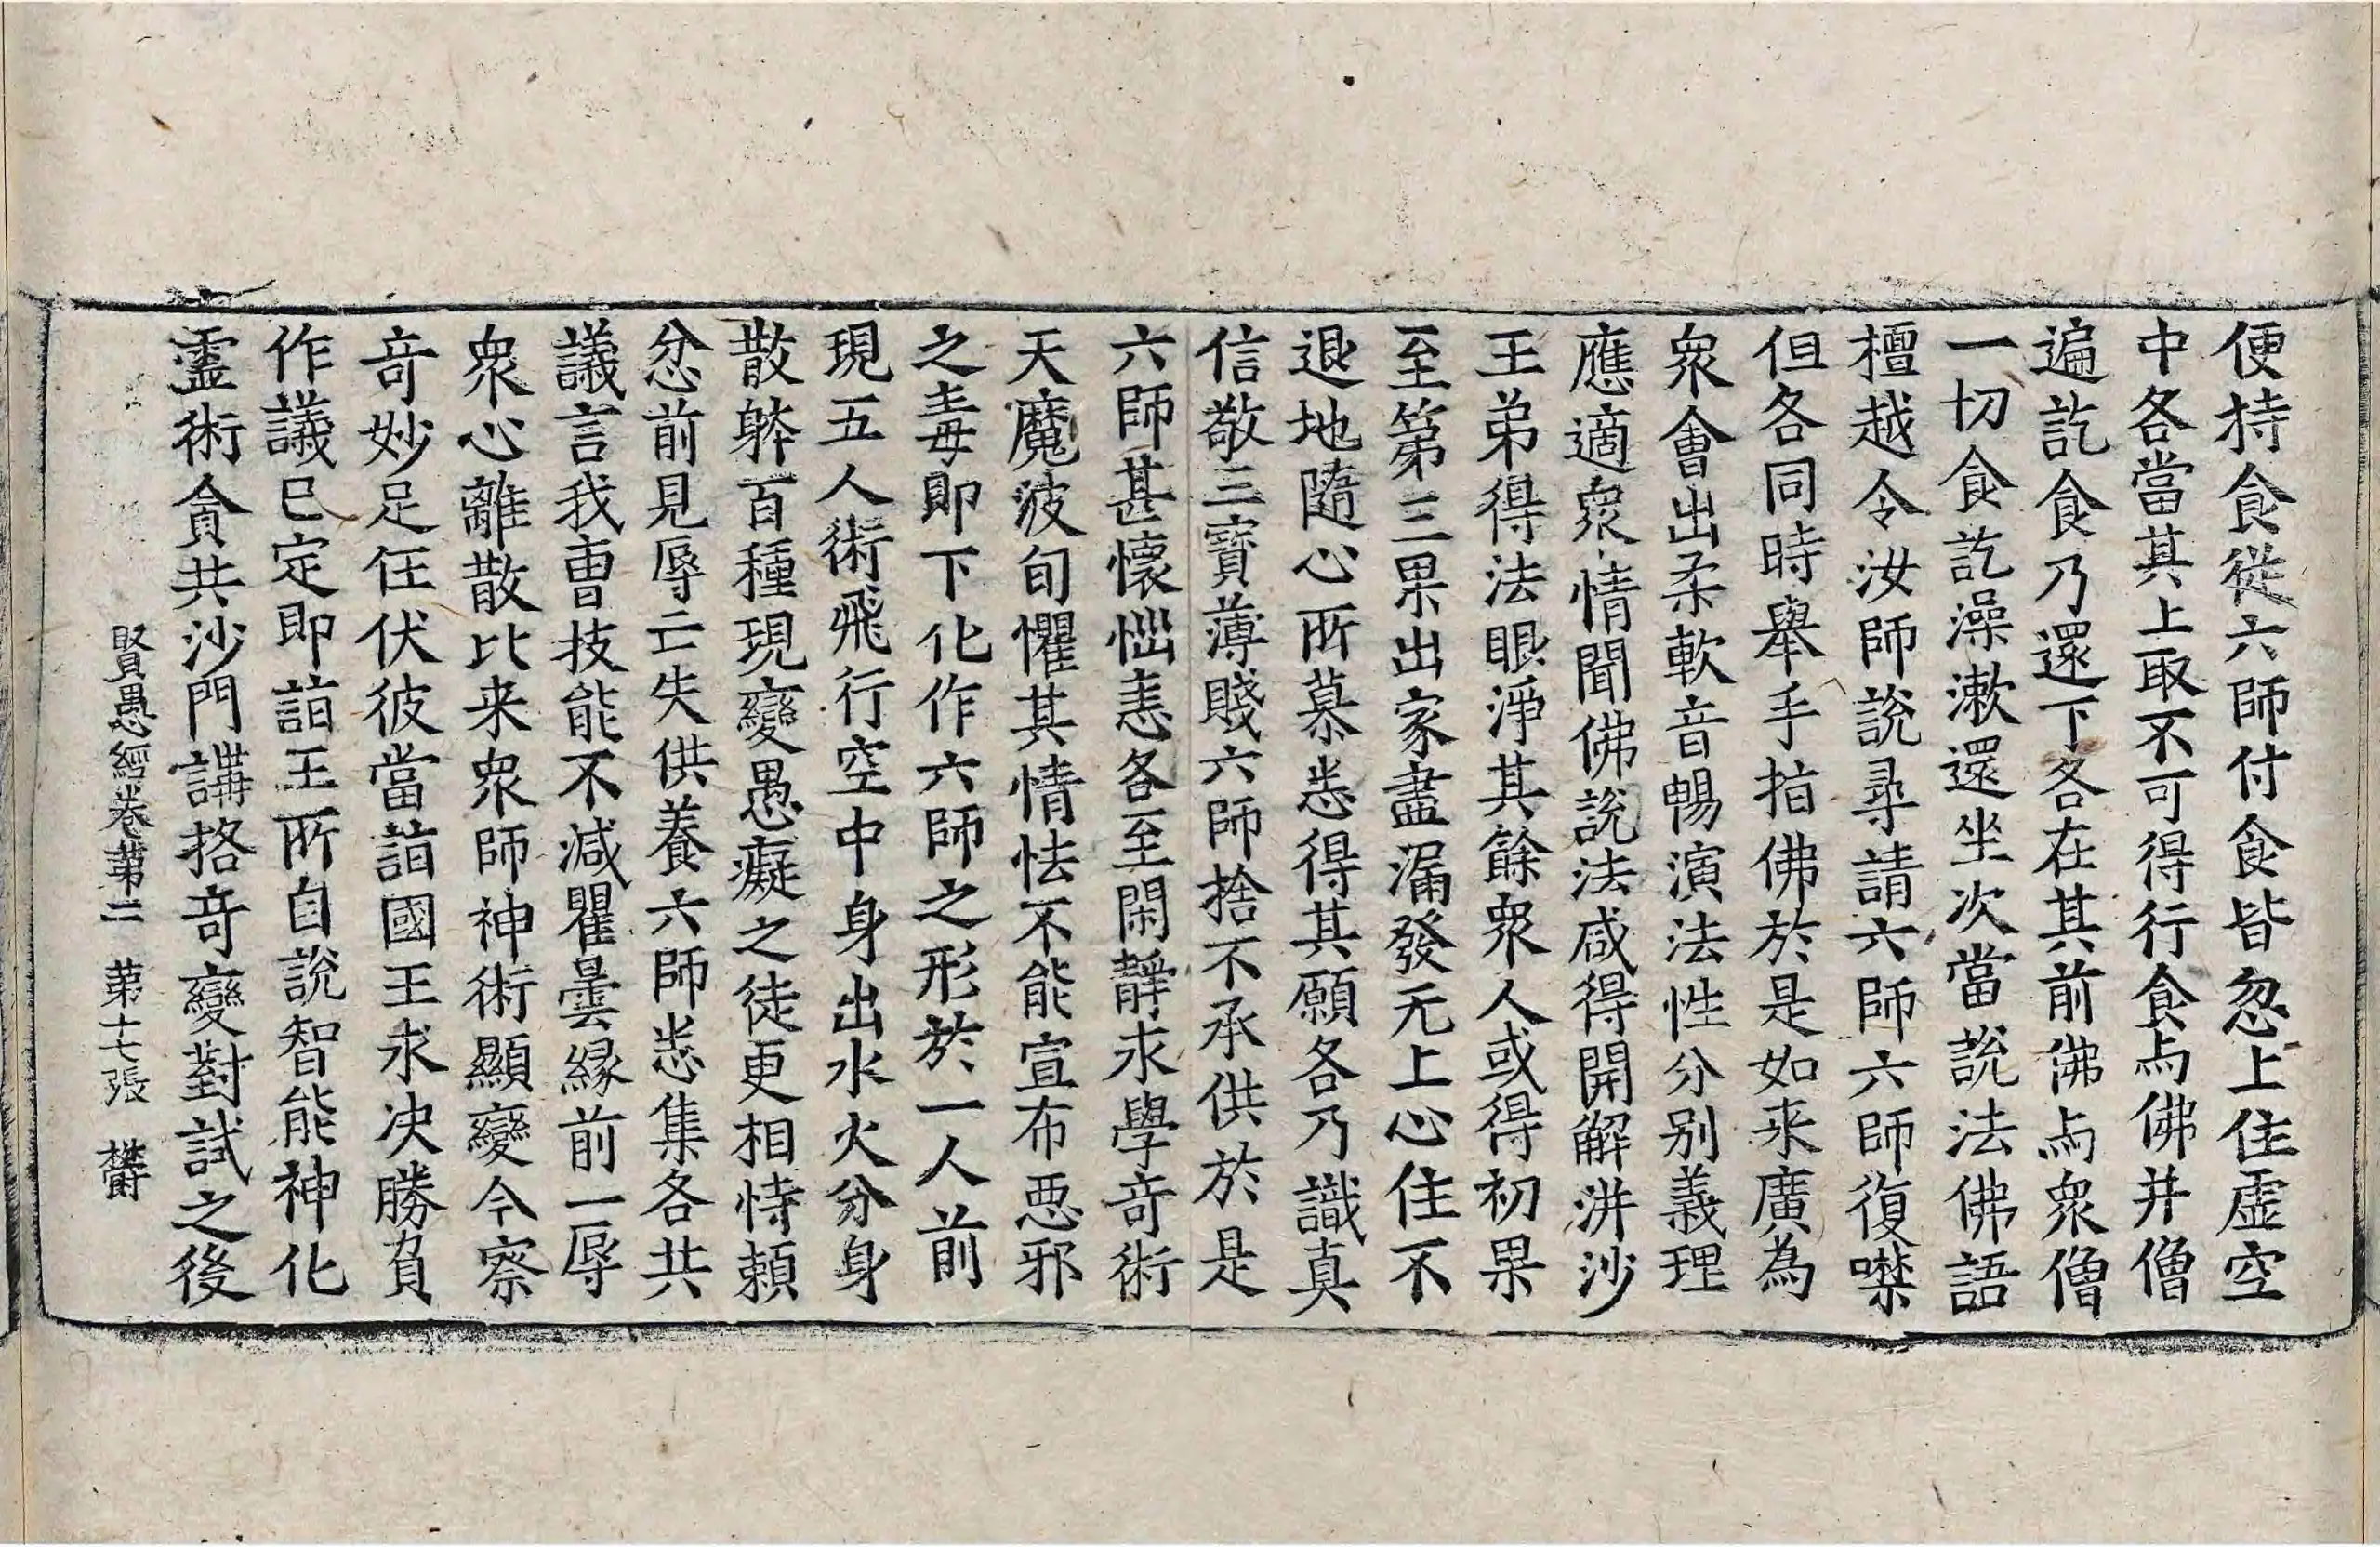 便持食從六師付食皆忽上住虛空
中各當其上取不可得行食与佛并僧
遍訖食乃還下各在其前佛与衆僧
一切食訖澡漱還坐次當說法佛語
檀越令汝師說尋請六師六師復噤
但各同時舉手拍佛於是如来廣為
衆會出柔軟音暢演法性分别義理
應適衆情聞佛說法咸得開解洴沙
王弟得法眼淨其餘衆人或得初果
至第三果出家盡漏發无上心住不
退地隨心所慕悉得其願各乃識真
信敬三寶薄賤六師捨不承供於是
六師甚懷惱恚各至閑靜求學竒術
天魔波旬懼其情怯不能宣布惡邪
之毒即下化作六師之形於一人前
現五人術飛行空中身出水火分身
散躰百種現變愚癡之徒更相恃賴
忿前見辱亡失供養六師悉集各共
議言我曹技能不減瞿曇縁前一辱
衆心離散比来衆師神術顯變今察
竒妙足任伏彼當詣國王求决勝負
作議已定即詣王所自說智能神化
靈術貪共沙門講挌竒變對試之後
賢愚經卷第二 第十七張 欝